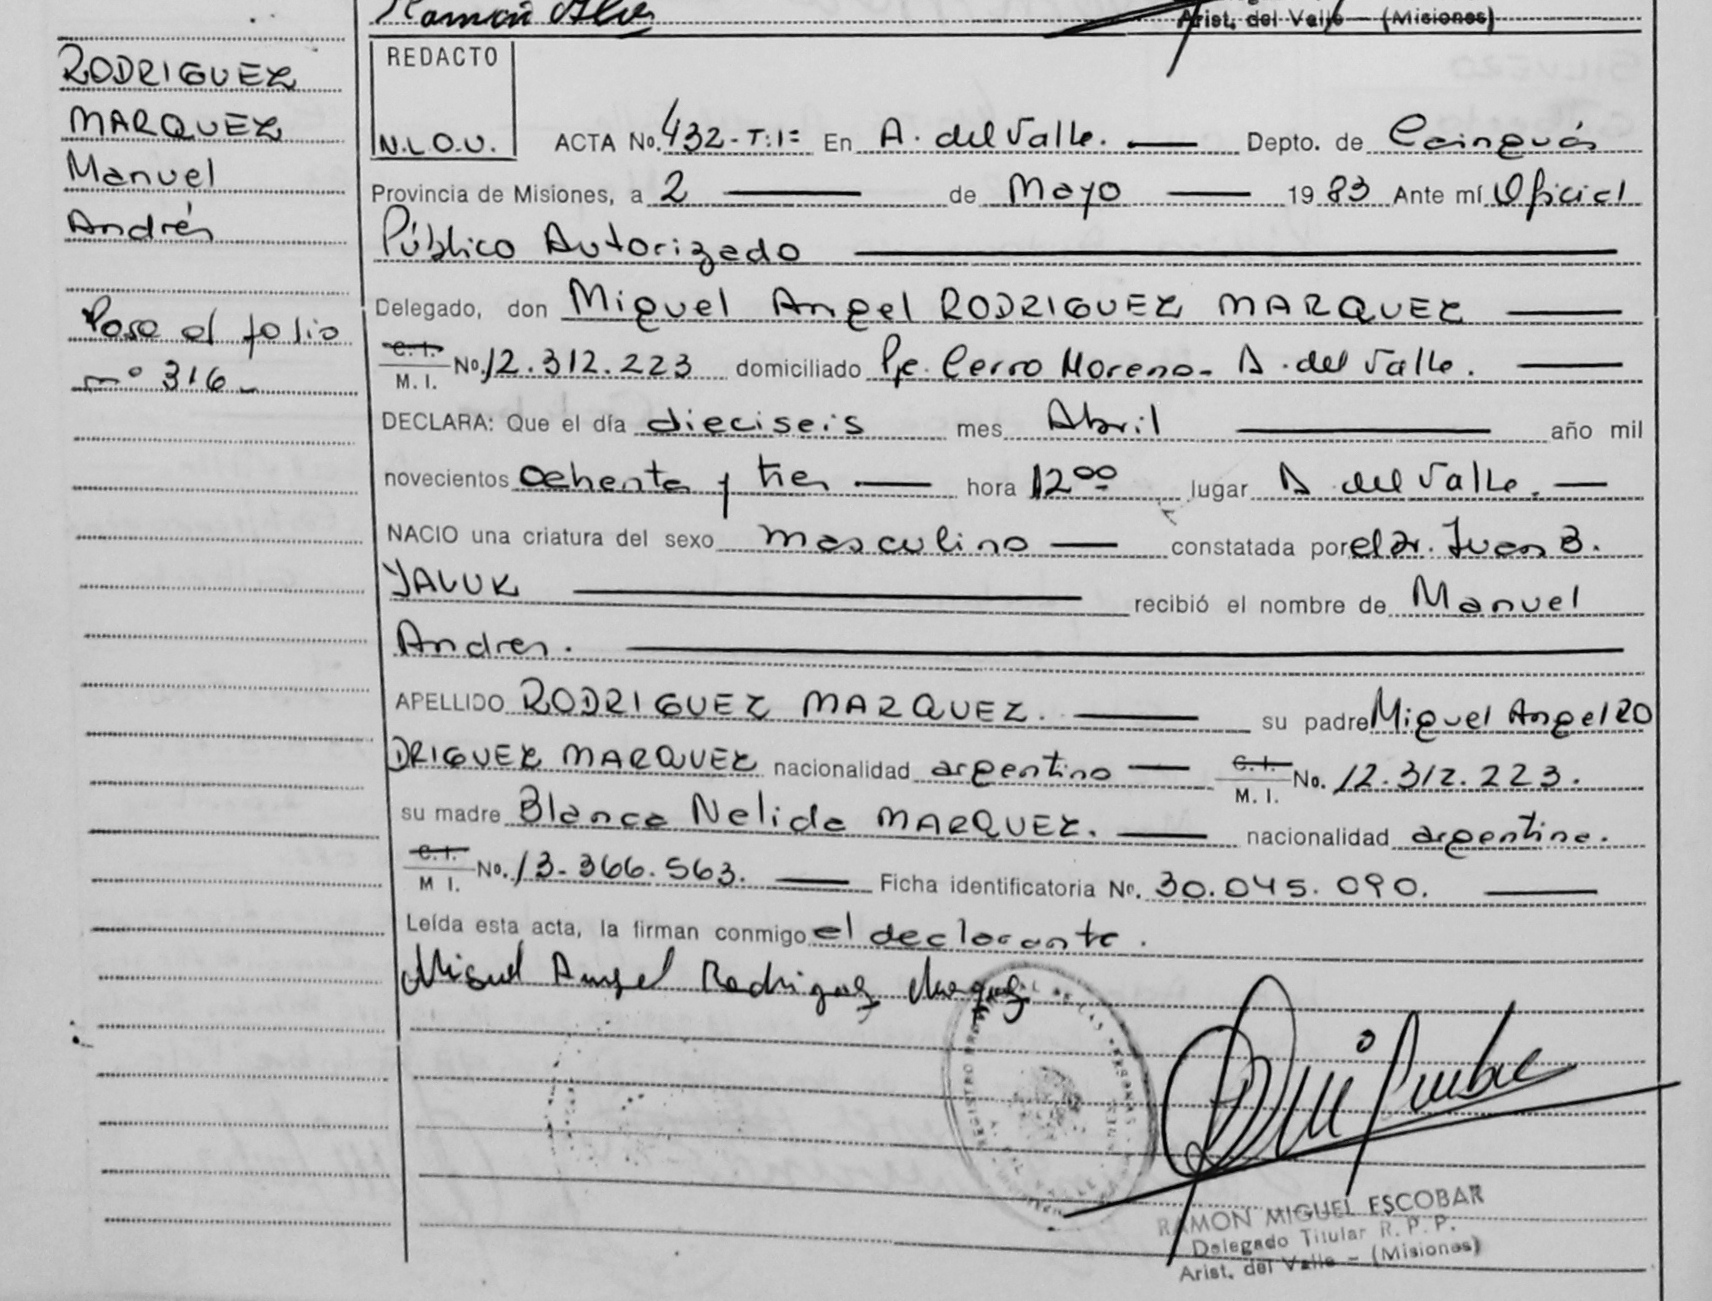 Ramón Alve
Arist. del Valle — (Misiones)
RODRIGUEZ
MARQUEZ
Manuel
Andrés
Pase al folio
nº 316
REDACTO
N.L.O.U.
ACTA No. 432-T:1= En A. del Valle. Depto. de Cainguás
Provincia de Misiones, a 2 de Mayo 1983 Ante mí Oficial
Público Autorizado
Delegado, don Miguel Angel RODRIGUEZ MARQUEZ
C. I. / M. I. No. 12.312.223 domiciliado Pje. Cerro Moreno- A. del Valle.
DECLARA: Que el día dieciseis mes Abril año mil
novecientos ochenta y tres hora 12⁰⁰ lugar A del Valle.
NACIO una criatura del sexo masculino constatada por el dr. Juan B.
YALUK recibió el nombre de Manuel
Andres.
APELLIDO RODRIGUEZ MARQUEZ. su padre Miguel Angel RO
DRIGUEZ MARQUEZ nacionalidad argentino C. I. / M. I. No. 12.312.223.
su madre Blanca Nelida MARQUEZ. nacionalidad argentina.
C. I. / M I. No. 13.366.563. Ficha identificatoria No. 30.045.090.
Leída esta acta, la firman conmigo el declarante.
Miguel Angel Rodriguez Marquez
RAMON MIGUEL ESCOBAR
Delegado Titular R. P. P.
Arist. del Valle — (Misiones)